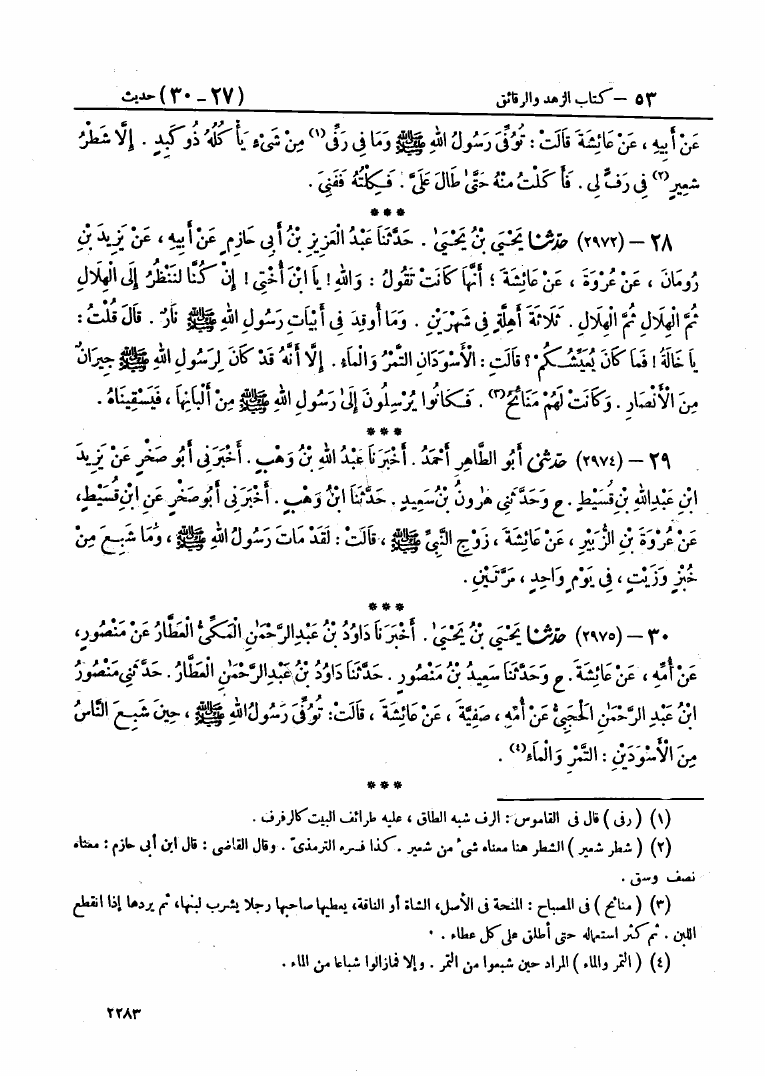 ٥٣ – كتاب الزهد والرقائق (٢٧ – ٣٠) حديث
عَنْ أَبِيهِ ، عَنْ عَائِشَةَ قَالَتْ : تُوُفِّىَ رَسُولُ اللهِ ﷺ وَمَا فِى رَفِّى(١) مِنْ شَىْءٍ يَأْكُلُهُ ذُو كَبِدٍ . إِلَّا شَطْرُ
شَعِيرٍ(٢) فِى رَفٍّ لِى . فَأَكَلْتُ مِنْهُ حَتَّىٰ طَالَ عَلَىَّ . فَكِلْتُهُ فَفَنِىَ .
***
٢٨ – (٢٩٧٢) حَدَّثَنَا يَحْيَىٰ بْنُ يَحْيَىٰ . حَدَّثَنَا عَبْدُ الْعَزِيزِ بْنُ أَبِى حَازِمٍ عَنْ أَبِيهِ ، عَنْ يَزِيدَ بْنِ
رُومَانَ ، عَنْ عُرْوَةَ ، عَنْ عَائِشَةَ ؛ أَنَّهَا كَانَتْ تَقُولُ : وَاللهِ ! يَا ابْنَ أُخْتِى ! إِنْ كُنَّا لَنَنْظُرُ إِلَى الْهِلَالِ
ثُمَّ الْهِلَالِ ثُمَّ الْهِلَالِ . ثَلَاثَةَ أَهِلَّةٍ فِى شَهْرَيْنِ . وَمَا أُوقِدَ فِى أَبْيَاتِ رَسُولِ اللهِ ﷺ نَارٌ . قَالَ قُلْتُ :
يَا خَالَةُ ! فَمَا كَانَ يُعَيِّشُكُمْ ؟ قَالَتِ : الْأَسْوَدَانِ التَّمْرُ وَالْمَاءُ . إِلَّا أَنَّهُ قَدْ كَانَ لِرَسُولِ اللهِ ﷺ جِيرَانٌ
مِنَ الْأَنْصَارِ . وَكَانَتْ لَهُمْ مَنَائِحُ(٣) . فَكَانُوا يُرْسِلُونَ إِلَىٰ رَسُولِ اللهِ ﷺ مِنْ أَلْبَانِهَا ، فَيَسْقِينَاهُ .
***
٢٩ – (٢٩٧٤) حَدَّثَنِى أَبُو الطَّاهِرِ أَحْمَدُ . أَخْبَرَنَا عَبْدُ اللهِ بْنُ وَهْبٍ . أَخْبَرَنِى أَبُو صَخْرٍ عَنْ يَزِيدَ
ابْنِ عَبْدِ اللهِ بْنِ قُسَيْطٍ . ح وَحَدَّثَنِى هَٰرُونُ بْنُ سَعِيدٍ . حَدَّثَنَا ابْنُ وَهْبٍ . أَخْبَرَنِى أَبُو صَخْرٍ عَنِ ابْنِ قُسَيْطٍ ،
عَنْ عُرْوَةَ بْنِ الزُّبَيْرِ ، عَنْ عَائِشَةَ ، زَوْجِ النَّبِىِّ ﷺ ، قَالَتْ : لَقَدْ مَاتَ رَسُولُ اللهِ ﷺ ، وَمَا شَبِعَ مِنْ
خُبْزٍ وَزَيْتٍ ، فِى يَوْمٍ وَاحِدٍ ، مَرَّتَيْنِ .
***
٣٠ – (٢٩٧٥) حَدَّثَنَا يَحْيَىٰ بْنُ يَحْيَىٰ . أَخْبَرَنَا دَاوُدُ بْنُ عَبْدِ الرَّحْمَٰنِ الْمَكِّىُّ الْعَطَّارُ عَنْ مَنْصُورٍ ،
عَنْ أُمِّهِ ، عَنْ عَائِشَةَ . ح وَحَدَّثَنَا سَعِيدُ بْنُ مَنْصُورٍ . حَدَّثَنَا دَاوُدُ بْنُ عَبْدِ الرَّحْمَٰنِ الْعَطَّارُ . حَدَّثَنِى مَنْصُورُ
ابْنُ عَبْدِ الرَّحْمَٰنِ الْحَجَبِىُّ عَنْ أُمِّهِ ، صَفِيَّةَ ، عَنْ عَائِشَةَ ، قَالَتْ : تُوُفِّىَ رَسُولُ اللهِ ﷺ ، حِينَ شَبِعَ النَّاسُ
مِنَ الْأَسْوَدَيْنِ : التَّمْرِ وَالْمَاءِ(٤) .
***
(١) ( رفى ) قال فى القاموس : الرف شبه الطاق ، عليه طرائف البيت كالرفرف .
(٢) ( شطر شعير ) الشطر هنا معناه شىء من شعير . كذا فسره الترمذىّ . وقال القاضى : قال ابن أبى حازم : معناه
نصف وسق .
(٣) ( منائح ) فى المصباح : المنحة فى الأصل ، الشاة أو الناقة ، يعطيها صاحبها رجلا يشرب لبنها ، ثم يردها إذا انقطع
اللبن . ثم كثر استعماله حتى أطلق على كل عطاء .
(٤) ( التمر والماء ) المراد حين شبعوا من التمر . وإلا فمازالوا شباعا من الماء .
٢٢٨٣